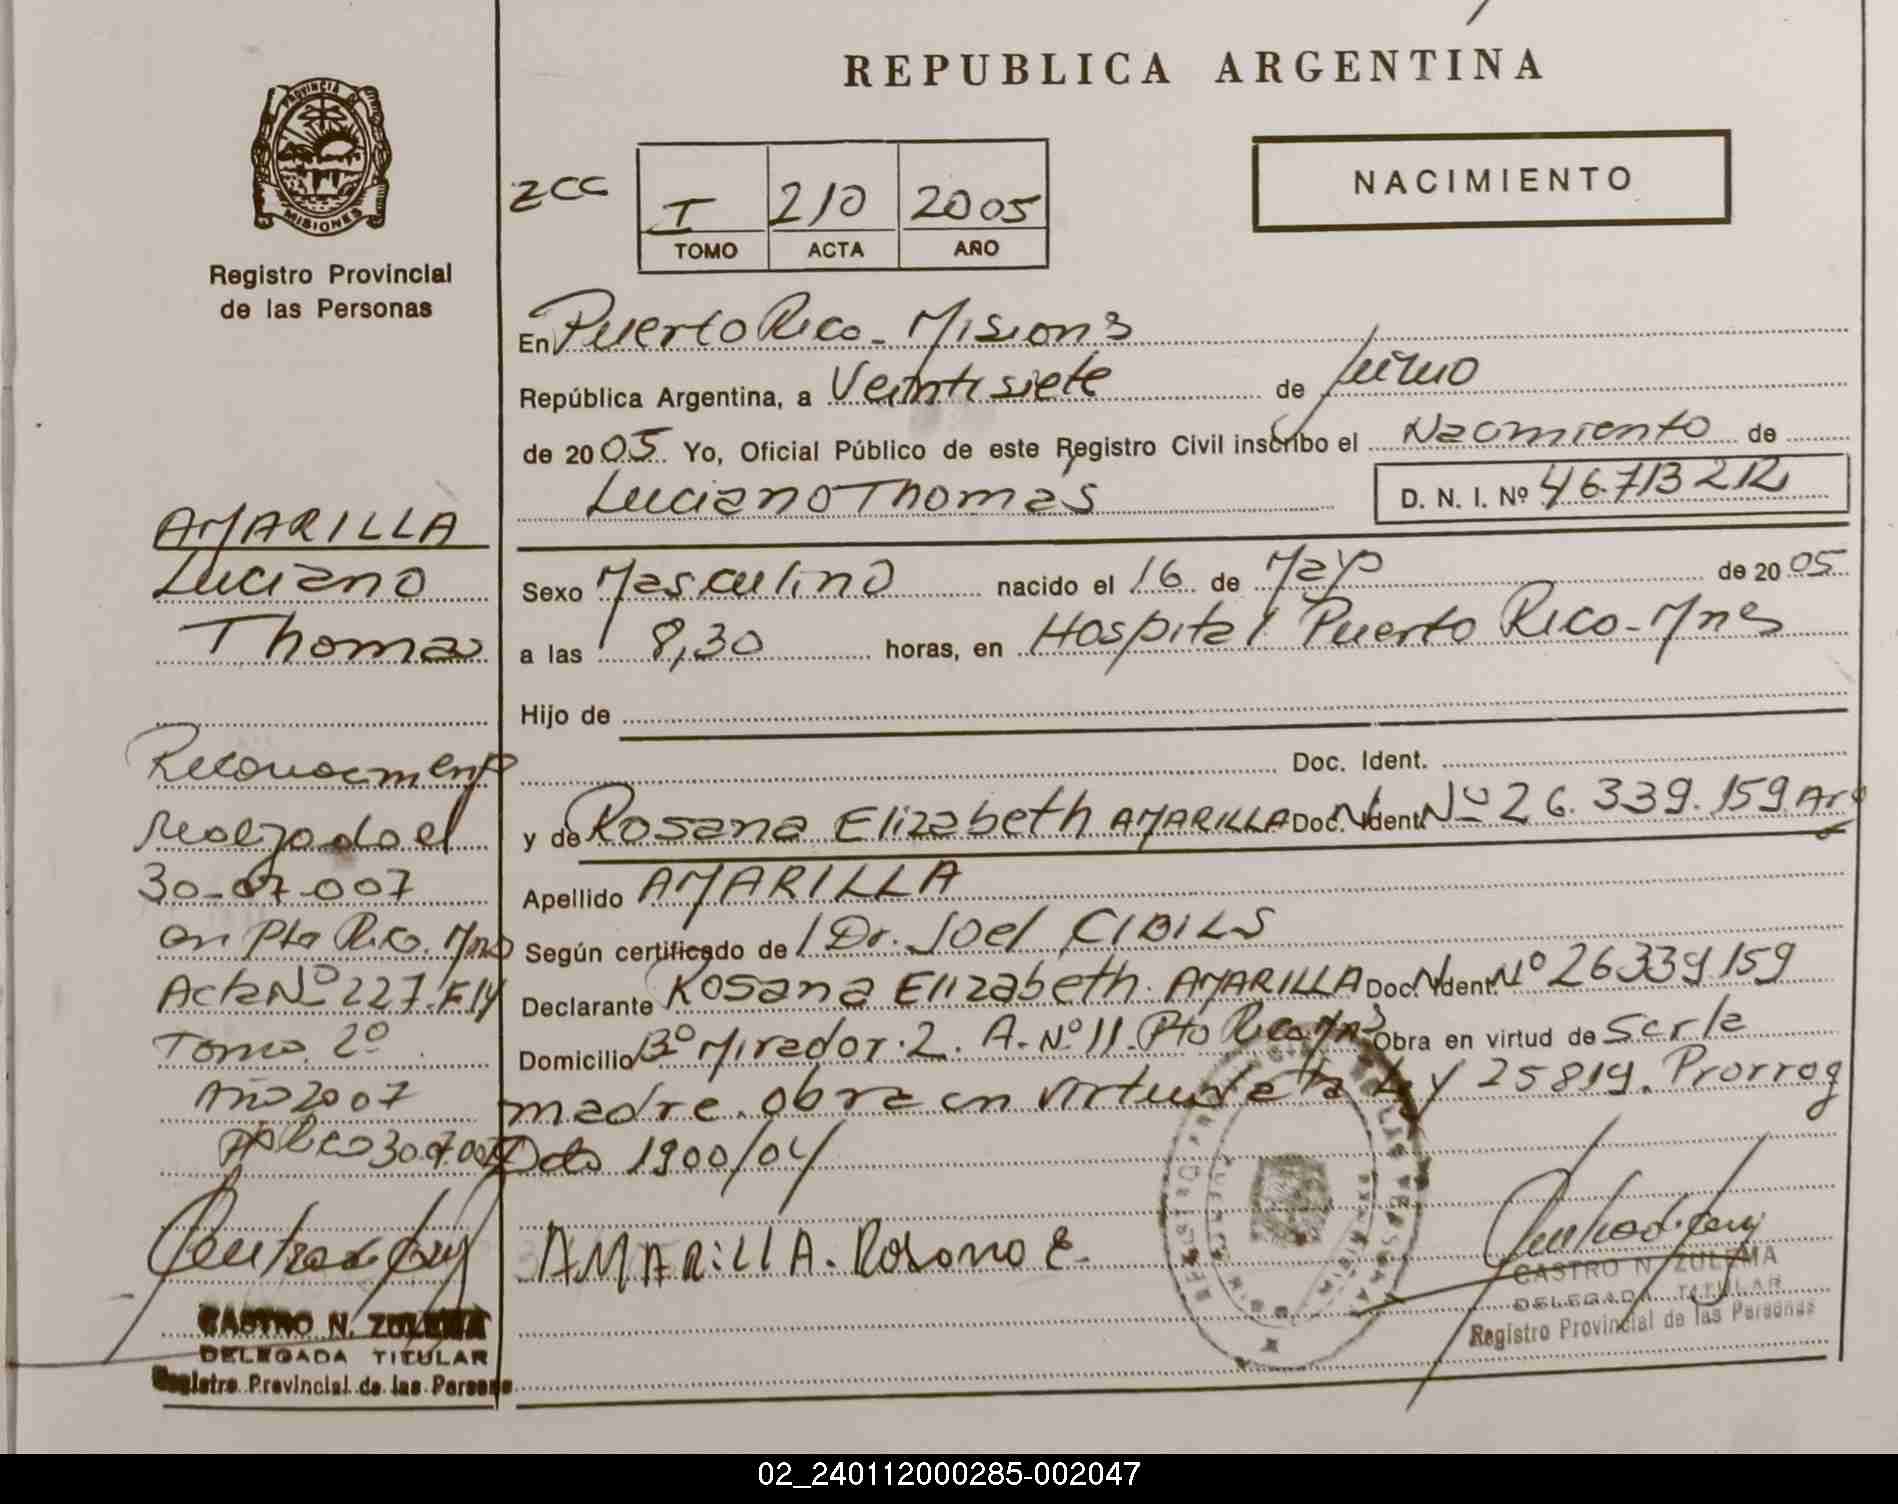 REPUBLICA ARGENTINA
PROVINCIA DE
MISIONES
Registro Provincial
de las Personas
ZCC
I 210 2005
TOMO ACTA AÑO
NACIMIENTO
En Puerto Rico - Misions
República Argentina, a Veintisiete de junio
de 2005 Yo, Oficial Público de este Registro Civil inscribo el Nacimiento de
Luciano Thomás
D. N. I. Nº 46.713212
AMARILLA
Luciano
Thomas
Sexo Masculino nacido el 16 de Mayo de 2005
a las 8,30 horas, en Hospital Puerto Rico - Mnes
Hijo de
Doc. Ident.
y de Rosana Elizabeth AMARILLA Doc. Ident. Nº 26.339.159 Arg
Apellido AMARILLA
Según certificado de Dr. Joel CIBILS
Declarante Rosana Elizabeth AMARILLA Doc. Ident. Nº 26339159
Domicilio Bº Mirador. 2. A. Nº 11. Pto Rico Mns Obra en virtud de Ser la
madre. obra en virtud de la Ley 25819. Prorrog
Dcto 1900/04
AMARillA. Rosana E.
CASTRO N. ZULEMA
DELEGADA TITULAR
Registro Provincial de las Personas
Reconocimento
realizado el
30-07-007
en Pto Rico. Mns
Acta Nº 227. F 14
Tomo 2º
Año 2007
Pto Rico 30.07.007
CASTRO N. ZULEMA
DELEGADA TITULAR
Registro Provincial de las Persona
02_240112000285-002047